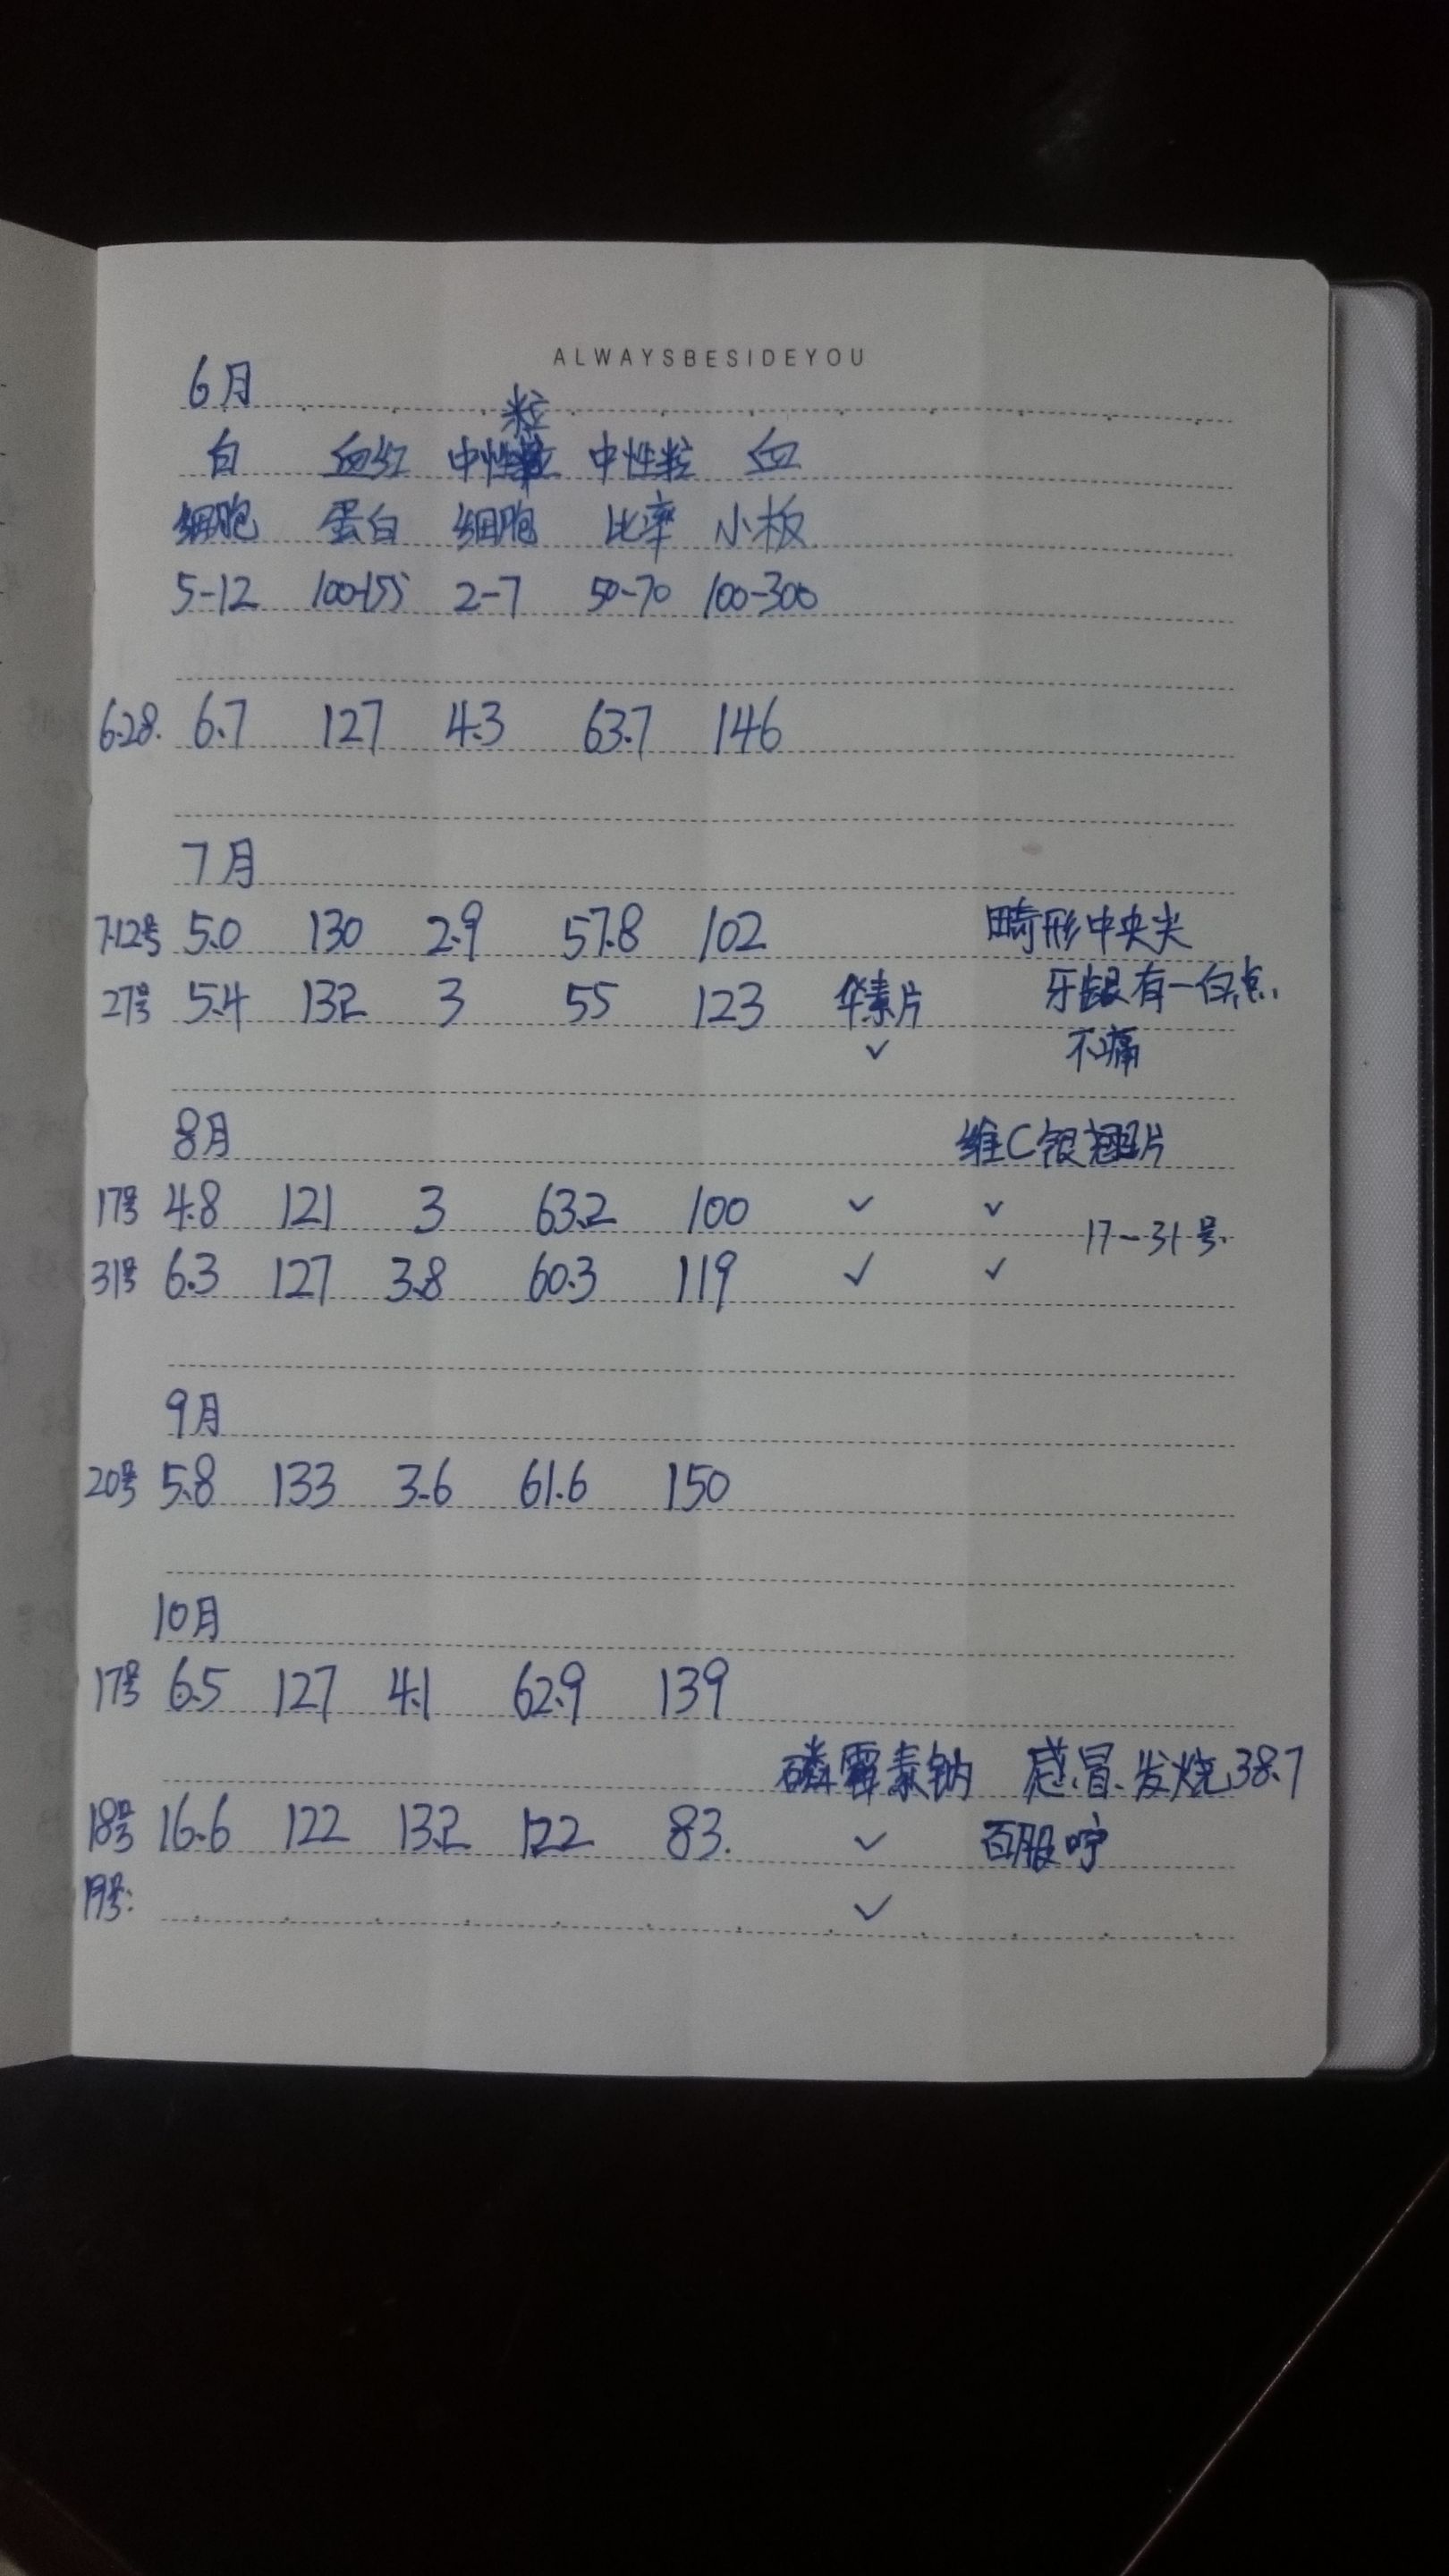 ALWAYSBESIDEYOU
6月
粒
白 血红 中性粒 中性粒 血
细胞 蛋白 细胞 比率 小板
5-12 100-155 2-7 50-70 100-300
6.28. 6.7 127 4.3 63.7 146
7月
7.12号 5.0 130 2.9 57.8 102 畸形中央尖
27号 5.4 132 3 55 123 华素片 牙龈有一白点.
✓ 不痛
8月 维C银翘片
17号 4.8 121 3 63.2 100 ✓ ✓ 17-31号.
31号 6.3 127 3.8 60.3 119 ✓ ✓
9月
20号 5.8 133 3.6 61.6 150
10月
17号 6.5 127 4.1 62.9 139
磷霉素钠 感冒.发烧38.7
18号 16.6 122 13.2 122 83. ✓ 百服咛
19号: ✓